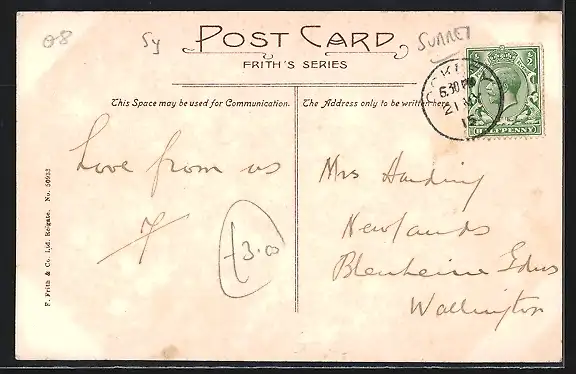 08
Sy
SURREY
POST CARD
FRITH'S SERIES
This Space may be used for Communication.
The Address only to be written here.
6.30 PM
21
15
HALFPENNY
Love from us
7
£3.00
Mrs Harding
Newlands
Blenheime Gdns
Wallington
F. Frith & Co. Ltd. Reigate. No. 50933